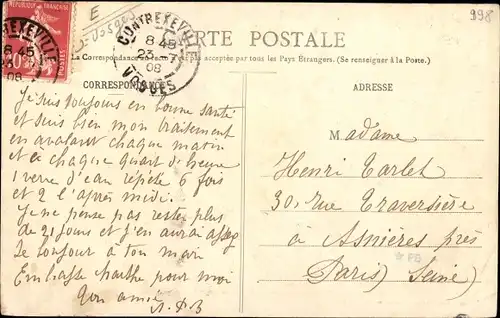 998
E
Vosges
REPUBLIQUE FRANCAISE
CONTREXEVILLE
8 45
23 - 7
08
VOSGES
CARTE POSTALE
La Correspondance au recto n'est pas acceptée par tous les Pays Étrangers. (Se renseigner à la Poste.)
CORRESPONDANCE
ADRESSE
Je suis toujours en bonne santé
et suis bien mon traitement
en avalant chaque matin
et a chaque quart d'heure
1 verre d'eau répété 6 fois
et 2 l'après midi.
Je ne pense pas rester plus
de 21 jours et j'en aurai assez
Le bonjour à ton mari
Embrasse Marthe pour moi
Ton amie A. D B
Madame
Henri Tarlet
30, rue Traversière
à Asnières près
Paris (Seine)